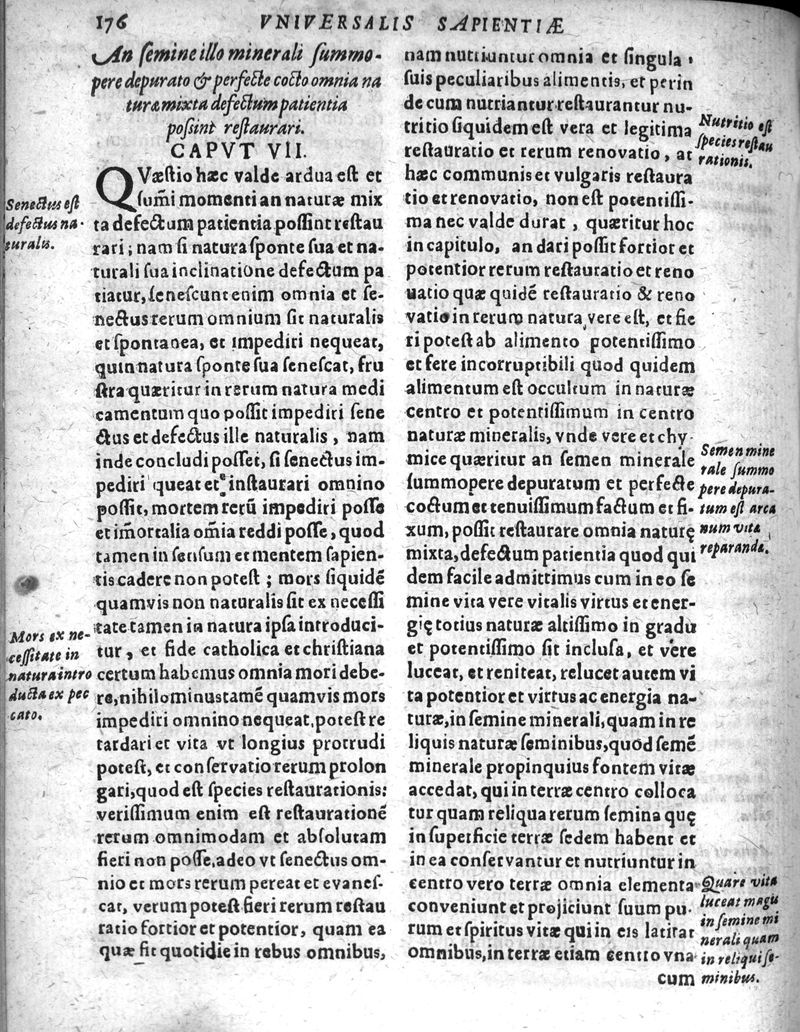 176 VNIVERSALIS SAPIENTIÆ
An ſemine illo minerali ſummo-
pere depurato & perfecte cocto omnia na
turæ mixta defectum patientia
poſſint reſtaurari.
CAPVT VII.
QVæſtio hæc valde ardua eſt et
ſum̃i momenti an naturæ mix
ta defectum patientia poſſint reſtau
rari; nam ſi natura ſponte ſua et na-
turali ſua inclinatione defectum pa
tiatur, ſeneſcunt enim omnia et ſe-
nectus rerum omnium ſit naturalis
et ſpontanea, et impediri nequeat,
quin natura ſponte ſua ſeneſcat, fru
ſtra quæritur in rerum natura medi
camentum quo poſſit impediri ſene
ctus et defectus ille naturalis, nam
inde concludi poſſet, ſi ſenectus im-
pediri queat et inſtaurari omnino
poſſit, mortem rerũ impediri poſſe
et im̃ortalia om̃ia reddi poſſe, quod
tamen in ſenſum et mentem ſapien-
tis cadere non poteſt; mors ſiquidẽ
quamvis non naturalis ſit ex neceſſi
tate tamen in natura ipſa introduci-
tur, et fide catholica et chriſtiana
certum habemus omnia mori debe-
re, nihilominus tamẽ quamvis mors
impediri omnino nequeat, poteſt re
tardari et vita vt longius protrudi
poteſt, et conſervatio rerum prolon
gari, quod eſt ſpecies reſtaurationis:
veriſſimum enim eſt reſtaurationẽ
rerum omnimodam et abſolutam
fieri non poſſe, adeo vt ſenectus om-
nio et mors rerum pereat et evaneſ-
cat, verum poteſt fieri rerum reſtau
ratio fortior et potentior, quam ea
quæ fit quotidie in rebus omnibus,
Senectus eſt
defectus na-
turalis.
Mors ex ne-
ceſſitate in
natura intro
ducta ex pec
cato.
nam nutriuntur omnia et ſingula
ſuis peculiaribus alimentis, et perin
de cum nutriantur reſtaurantur nu-
tritio ſiquidem eſt vera et legitima
reſtauratio et rerum renovatio, at
hæc communis et vulgaris reſtaura
tio et renovatio, non eſt potentiſſi-
ma nec valde durat, quæritur hoc
in capitulo, an dari poſſit fortior et
potentior rerum reſtauratio et reno
uatio quæ quidẽ reſtauratio & reno
vatio in rerum natura vere eſt, et fie
ri poteſt ab alimento potentiſſimo
et fere incorruptibili quod quidem
alimentum eſt occultum in naturæ
centro et potentiſſimum in centro
naturæ mineralis, vnde vere et chy
mice quæritur an ſemen minerale
ſummopere depuratum et perfecte
coctum et tenuiſſimum factum et fi-
xum, poſſit reſtaurare omnia naturę
mixta, defectum patientia quod qui
dem facile admittimus cum in eo ſe
mine vita vere vitalis virtus et ener-
gię totius naturæ altiſſimo in gradu
et potentiſſimo ſit incluſa, et vere
luceat, et reniteat, relucet autem vi
ta potentior et virtus ac energia na-
turæ, in ſemine minerali, quam in re
liquis naturæ ſeminibus, quod ſemẽ
minerale propinquius fontem vitæ
accedat, qui in terræ centro colloca
tur quam reliqua rerum ſemina quę
in ſuperficie terræ ſedem habent et
in ea conſervantur et nutriuntur in
centro vero terræ omnia elementa
conveniunt et projiciunt ſuum pu-
rum et ſpiritus vitæ qui in eis latitat
omnibus, in terræ etiam centro vna
cum
Nutritio eſt
ſpecies reſtau
rationis.
Semen mine
rale ſummo
pere depura-
tum eſt arca
num vita
reparanda.
Quare vita
luceat magis
in ſemine mi
nerali quam
in reliqui ſe-
minibus.